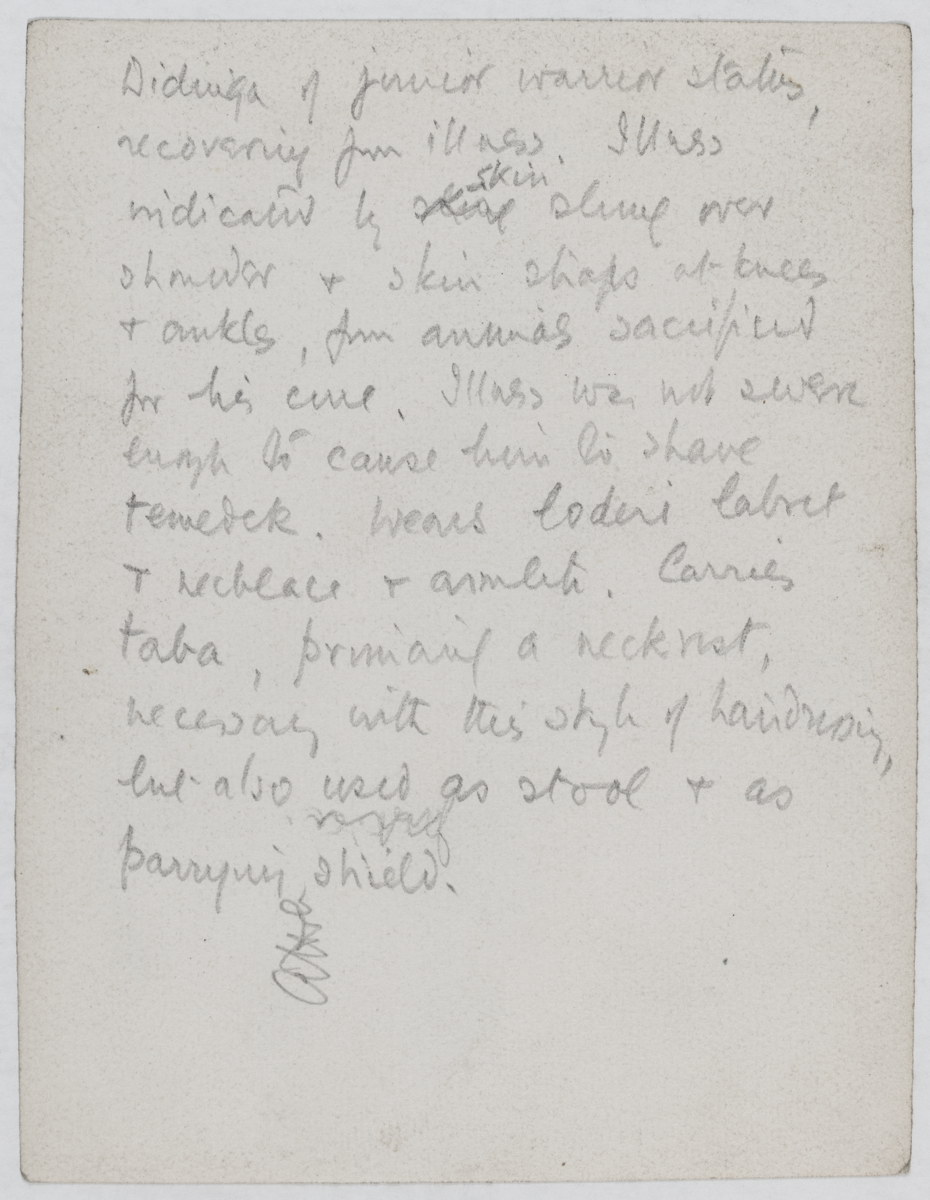 Didinga of junior warrior status,
recovering from illness. Illness
indicated by skin slung over
shoulder + skin straps at knees
+ ankles, from animals sacrificed
for his cure. Illness was not severe
enough to cause him to shave
temedek. Wears loderi labret
+ necklace + armlets. Carries
taba, primarily a neckrest,
necessary with this style of hairdressing,
but also used as stool + as
parrying shield.